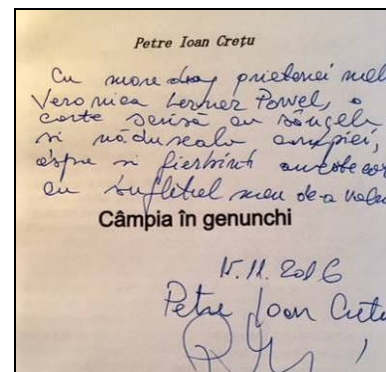 Petre Ioan Crețu
Cu mare drag prietenei mele
Veronica Lerner Powel, o
carte scrisă cu sângele
și nădușeala câmpiei,
aspre și fierbinți
cu sufletul meu de-a
Câmpia în genunchi
15.11.2016
Petre Ioan Crețu